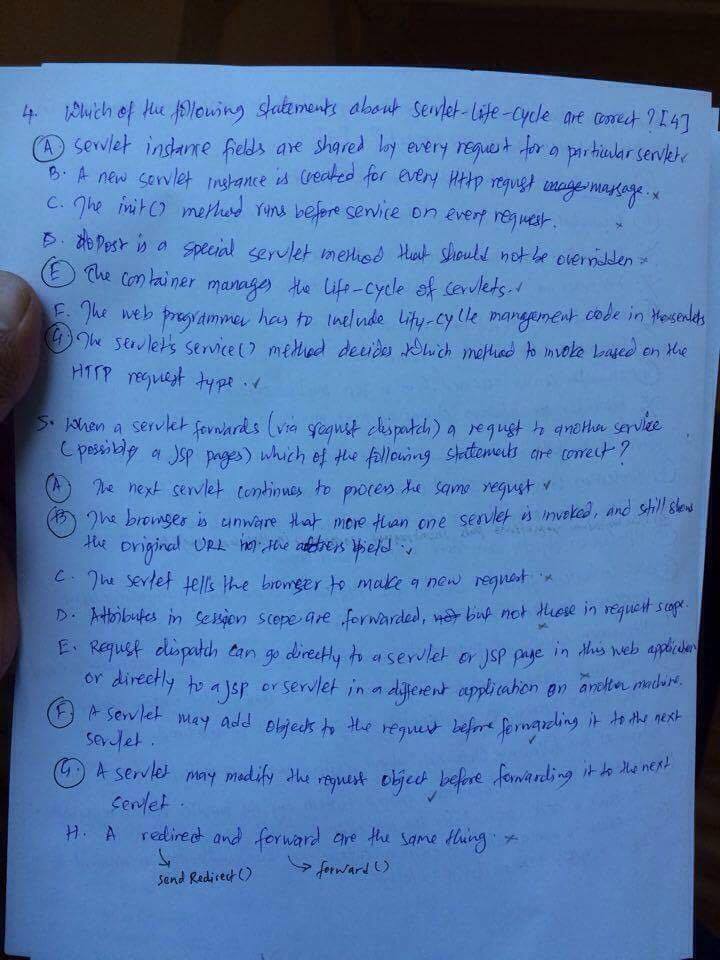 4. Which of the following statements about servlet-life-cycle are correct? [4]
A. Servlet instance fields are shared by every request for a particular servlet. ✓
B. A new servlet instance is created for every Http request massage. ×
C. The init() method runs before service on every request. ×
D. doPost is a special servlet method that should not be overridden ×
E. The container manages the life-cycle of servlets. ✓
F. The web programmer has to include life-cycle management code in
G. The servlet's service() method decides which method to invoke based on the
HTTP request type. ✓
5. When a servlet forwards (via request dispatch) a request to another service
(possibly a JSP pages) which of the following statements are correct?
A. The next servlet continues to process the same request ✓
B. The browser is unware that more than one servlet is invoked, and still shows
the original URL in the address field ✓
C. The servlet tells the browser to make a new request ×
D. Attributes in session scope are forwarded, but not those in request scope. ×
E. Request dispatch can go directly to a servlet or JSP page in this web application
or directly to a jsp or servlet in a different application on another machine. ×
F. A servlet may add objects to the request before forwarding it to the next
servlet. ✓
G. A servlet may modify the request object before forwarding it to the next
servlet. ✓
H. A redirect and forward are the same thing. ×
sendRedirect() forward()